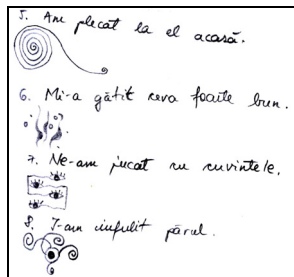 5. Am plecat la el acasă.
6. Mi-a gătit ceva foarte bun.
7. Ne-am jucat cu cuvintele.
8. I-am ciufulit părul.